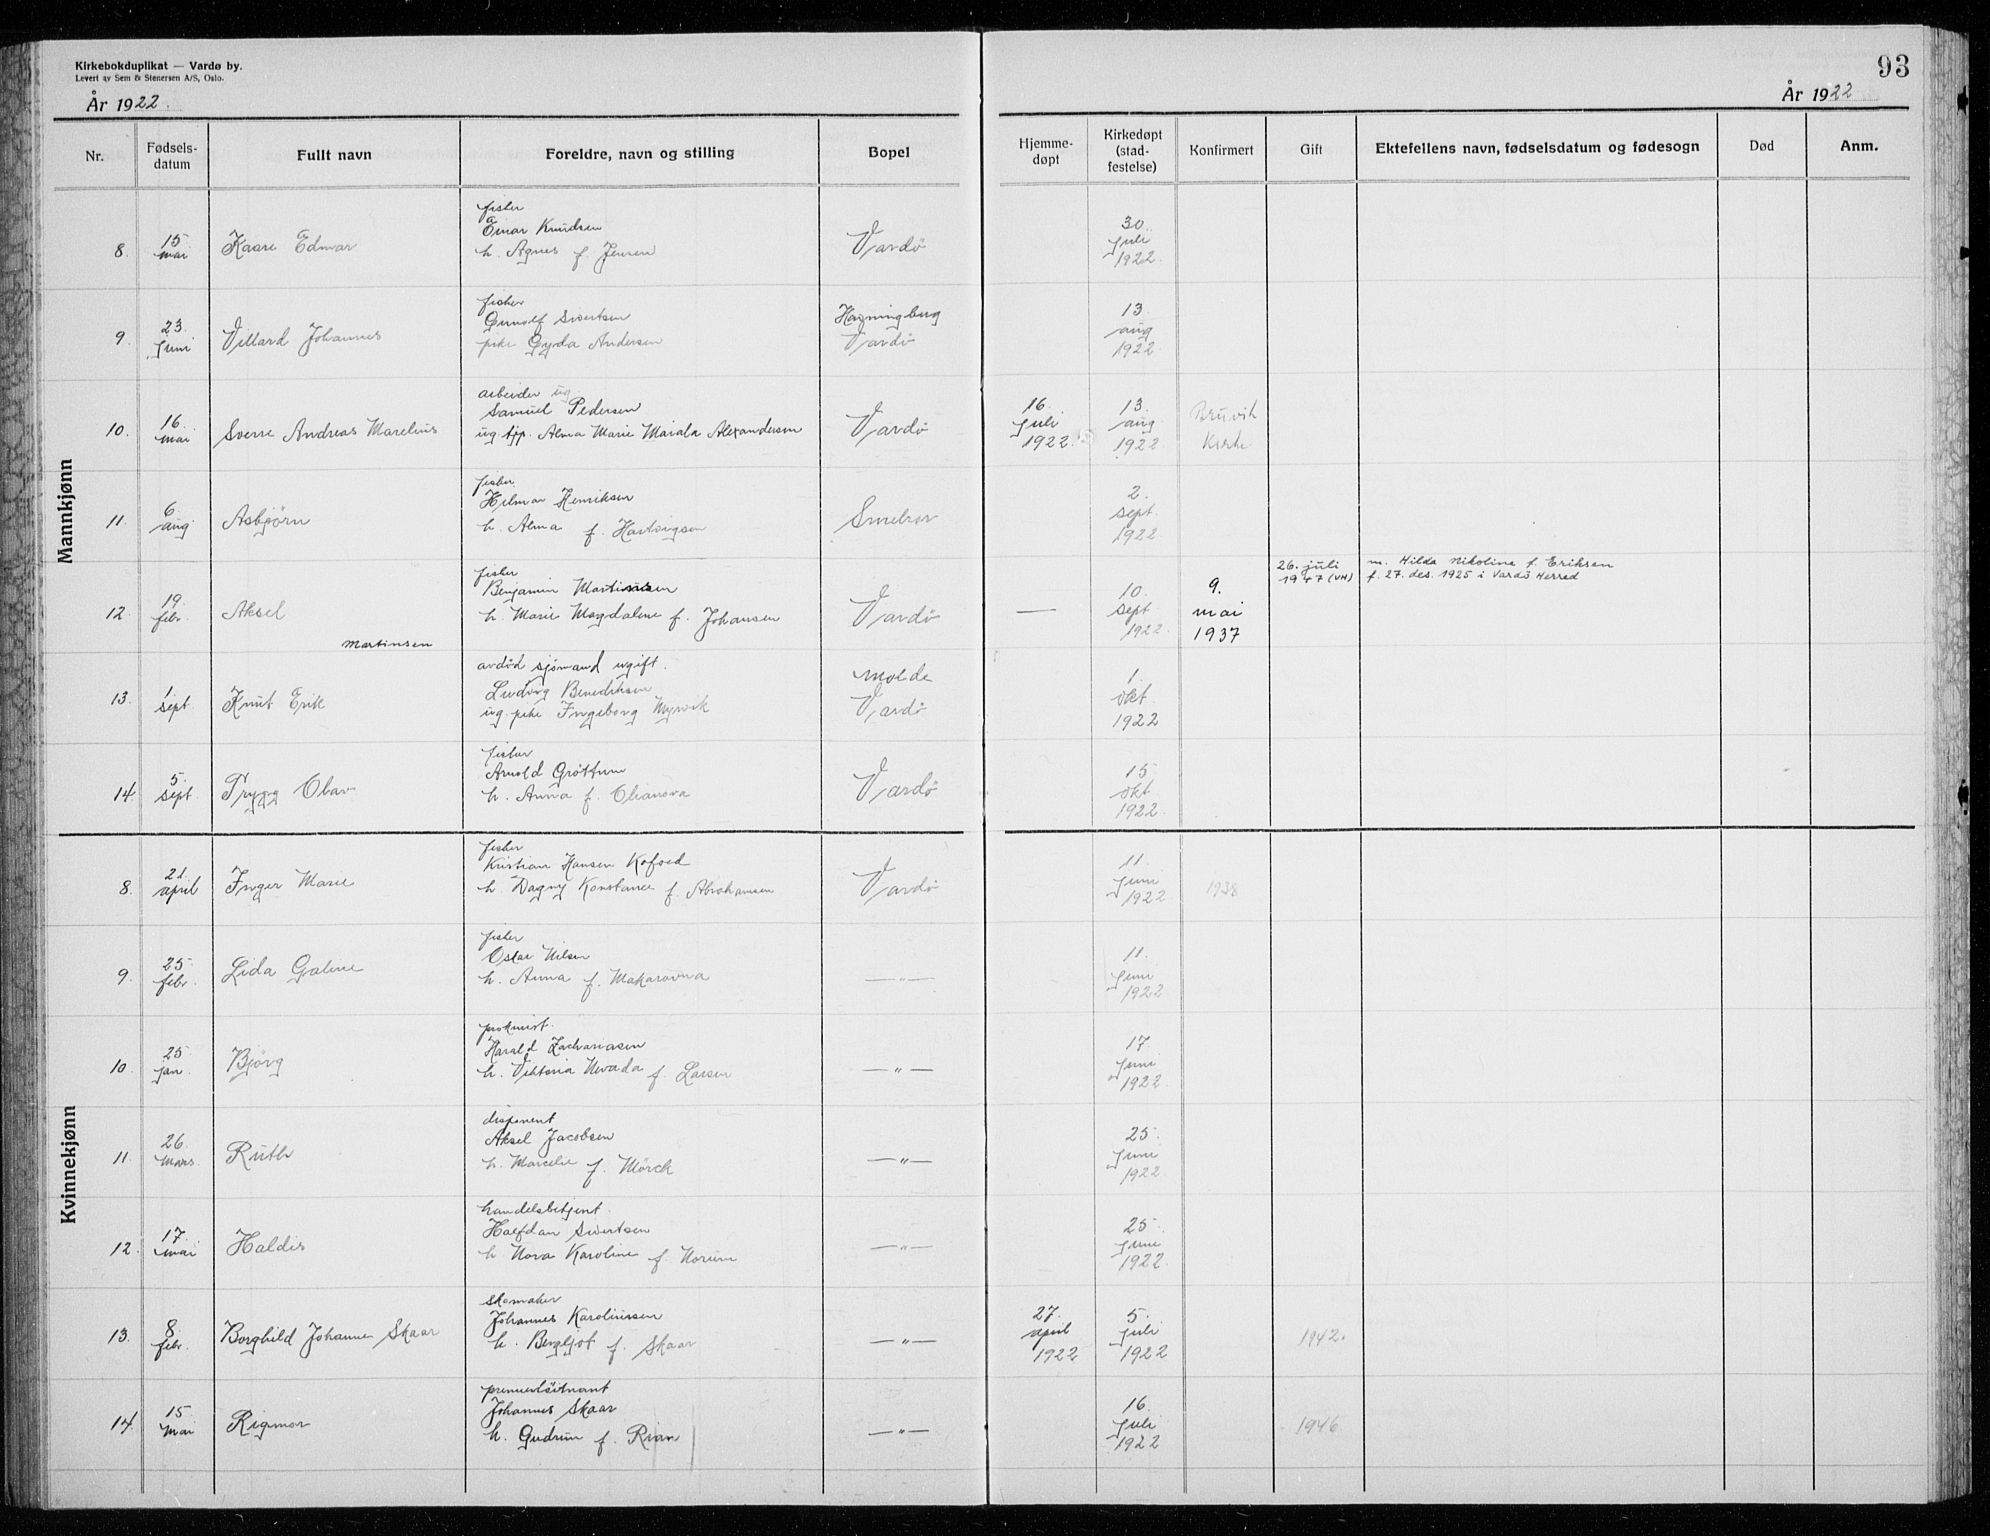 Kirkebokduplikat — Vardø by.
Levert av Sem & Stenersen A/S, Oslo.
År 1922.
93
År 1922
Nr.
Fødsels-
datum
Fullt navn
Foreldre, navn og stilling
Bopel
Hjemme-
døpt
Kirkedøpt
(stad-
festelse)
Konfirmert
Gift
Ektefellens navn, fødselsdatum og fødesogn
Død
Anm.
Mannkjønn
8.
15.
mai
Kaare Edmar
fisker
Einar Knudsen
h. Agnes f. Jensen
Vardø
30.
juli
1922.
9.
23.
juni
Villard Johannes
fisker
Gunolf Sivertsen
pike Gyda Andersen
Havningberg
Vardø
13.
aug
1922.
10.
16.
mai
Sverre Andreas Marelius
arbeider ug
Samuel Pedersen
ug. tjp. Alma Marie Alexandersen
Vardø
16.
juli
1922.
13.
aug
1922.
Bruvik
Kirke
11.
6.
aug.
Asbjørn
fisker
Hilmar Henriksen
h. Alma f. Hartvigsen
Smelror
2.
sept.
1922.
12
19.
febr.
Aksel
Martinsen
fisker
Benjamin Martinsen
h. Marie Magdalene f. Johansen
Vardø
—
10.
sept
1922.
9.
mai
1937
26. juli
1947 (VH)
m. Hilda Nikoline f. Eriksen
f. 27. des. 1925 i Vardø Herred
13.
1.
sept.
Knut Erik
avdød sjømand ugift.
Ludvig Benediktsen
ug. pike Ingeborg Myrvik
Molde
Vardø
1.
okt.
1922
14.
5.
sept.
Trygg Olav
fisker
Arnold Grøttum
h. Anna f. Olianova
Vardø
15
okt
1922.
Kvinnekjønn
8.
21.
april
Inger Marie
fisker
Kristian Hansen Kofoed
h. Dagny Konstance f. Abrahamsen
Vardø
11.
juni
1922
1938
9.
25.
febr.
Lida Galine
fisker
Oskar Nilsen
h. Anna f. Makarovna
—„—
11.
juni
1922
10.
25
jan.
Bjørg
prokurist.
Harald Zachariasen
h. Viktoria Nevada f. Larsen
—„—
17.
juni
1922.
11.
26.
mars.
Ruth
disponent
Aksel Jacobsen
h. Marcelie f. Mörck
—„—
25.
juni
1922
12.
17.
mai
Haldis
handelsbetjent.
Halfdan Sivertsen
h Nora Karoline f. Norum
—„—
25.
juni
1922.
13.
8.
febr.
Borghild Johanne Skaar
skomaker
Johannes Karolinssen
h. Bergljot f. Skaar
—„—
27.
april
1922
5.
juli
1922
1942.
14.
15.
mai
Rigmor
premierløitnant
Johannes Skaar
h. Gudrun f. Rian
—„—
16.
juli
1922
1946